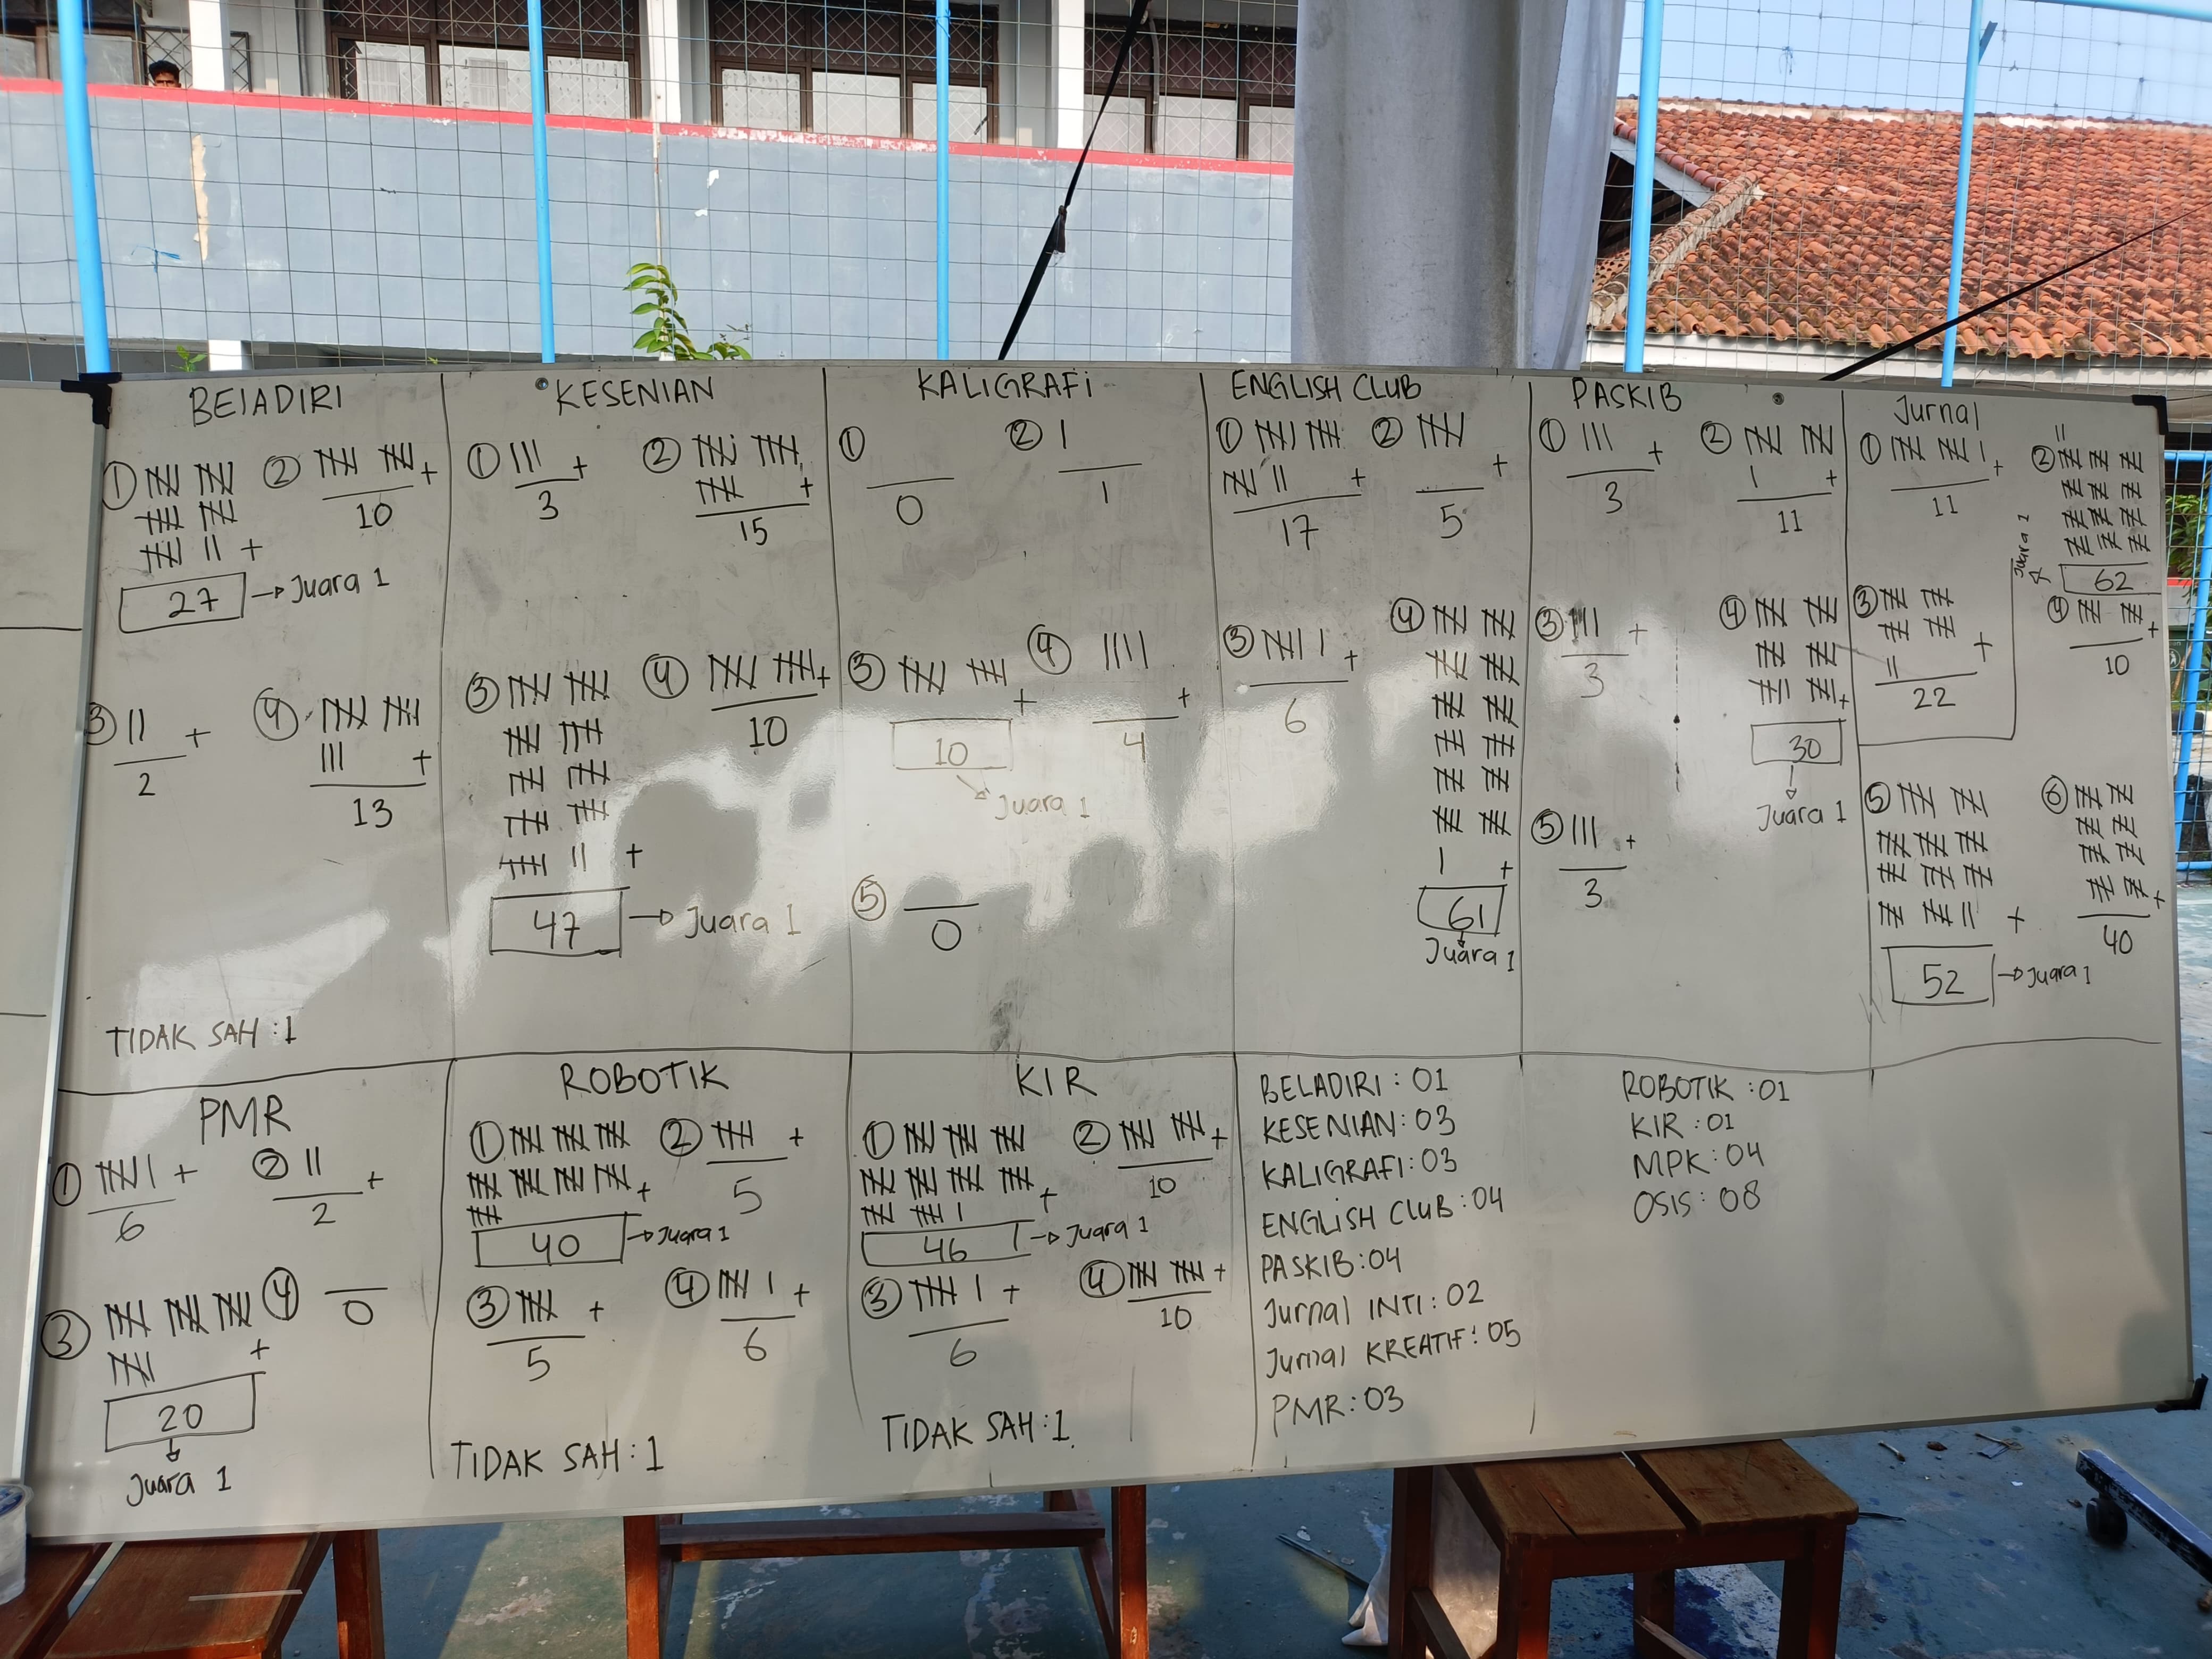 BElADIRI
① 27 → Juara 1
② 10
③ 2
④ 13
TIDAK SAH : 1
KESENIAN
① 3
② 15
③ 47 → Juara 1
④ 10
KALIGRAFi
① 0
② 1
③ 10 → Juara 1
④ 4
⑤ 0
ENGLISH CLUB
① 17
② 5
③ 6
④ 61
Juara 1
PASKIB
① 3
② 11
③ 3
④ 30
Juara 1
⑤ 3
Jurnal
① 11
② 62
③ 22
④ 10
⑤ 52 → Juara 1
⑥ 40
PMR
① 6
② 2
③ 20
Juara 1
④ 0
ROBOTIK
① 40 → Juara 1
② 5
③ 5
④ 6
TIDAK SAH : 1
KIR
① 46 → Juara 1
② 10
③ 6
④ 10
TIDAK SAH : 1
BELADIRI : 01
KESENIAN : 03
KALIGRAFI : 03
ENGLiSH CLUB : 04
PASKIB : 04
Jurnal INTI : 02
Jurnal KREATIF : 05
PMR : 03
ROBOTIK : 01
KIR : 01
MPK : 04
OSIS : 08